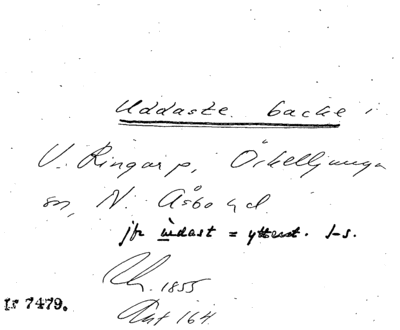 Uddaste backe
V. Ringarp, Örkelljunga
sn, N. Åsbo hd.
jfr ùdast = ytterst. s-s.
Rh. 1855
Ant 164
Is 7479.